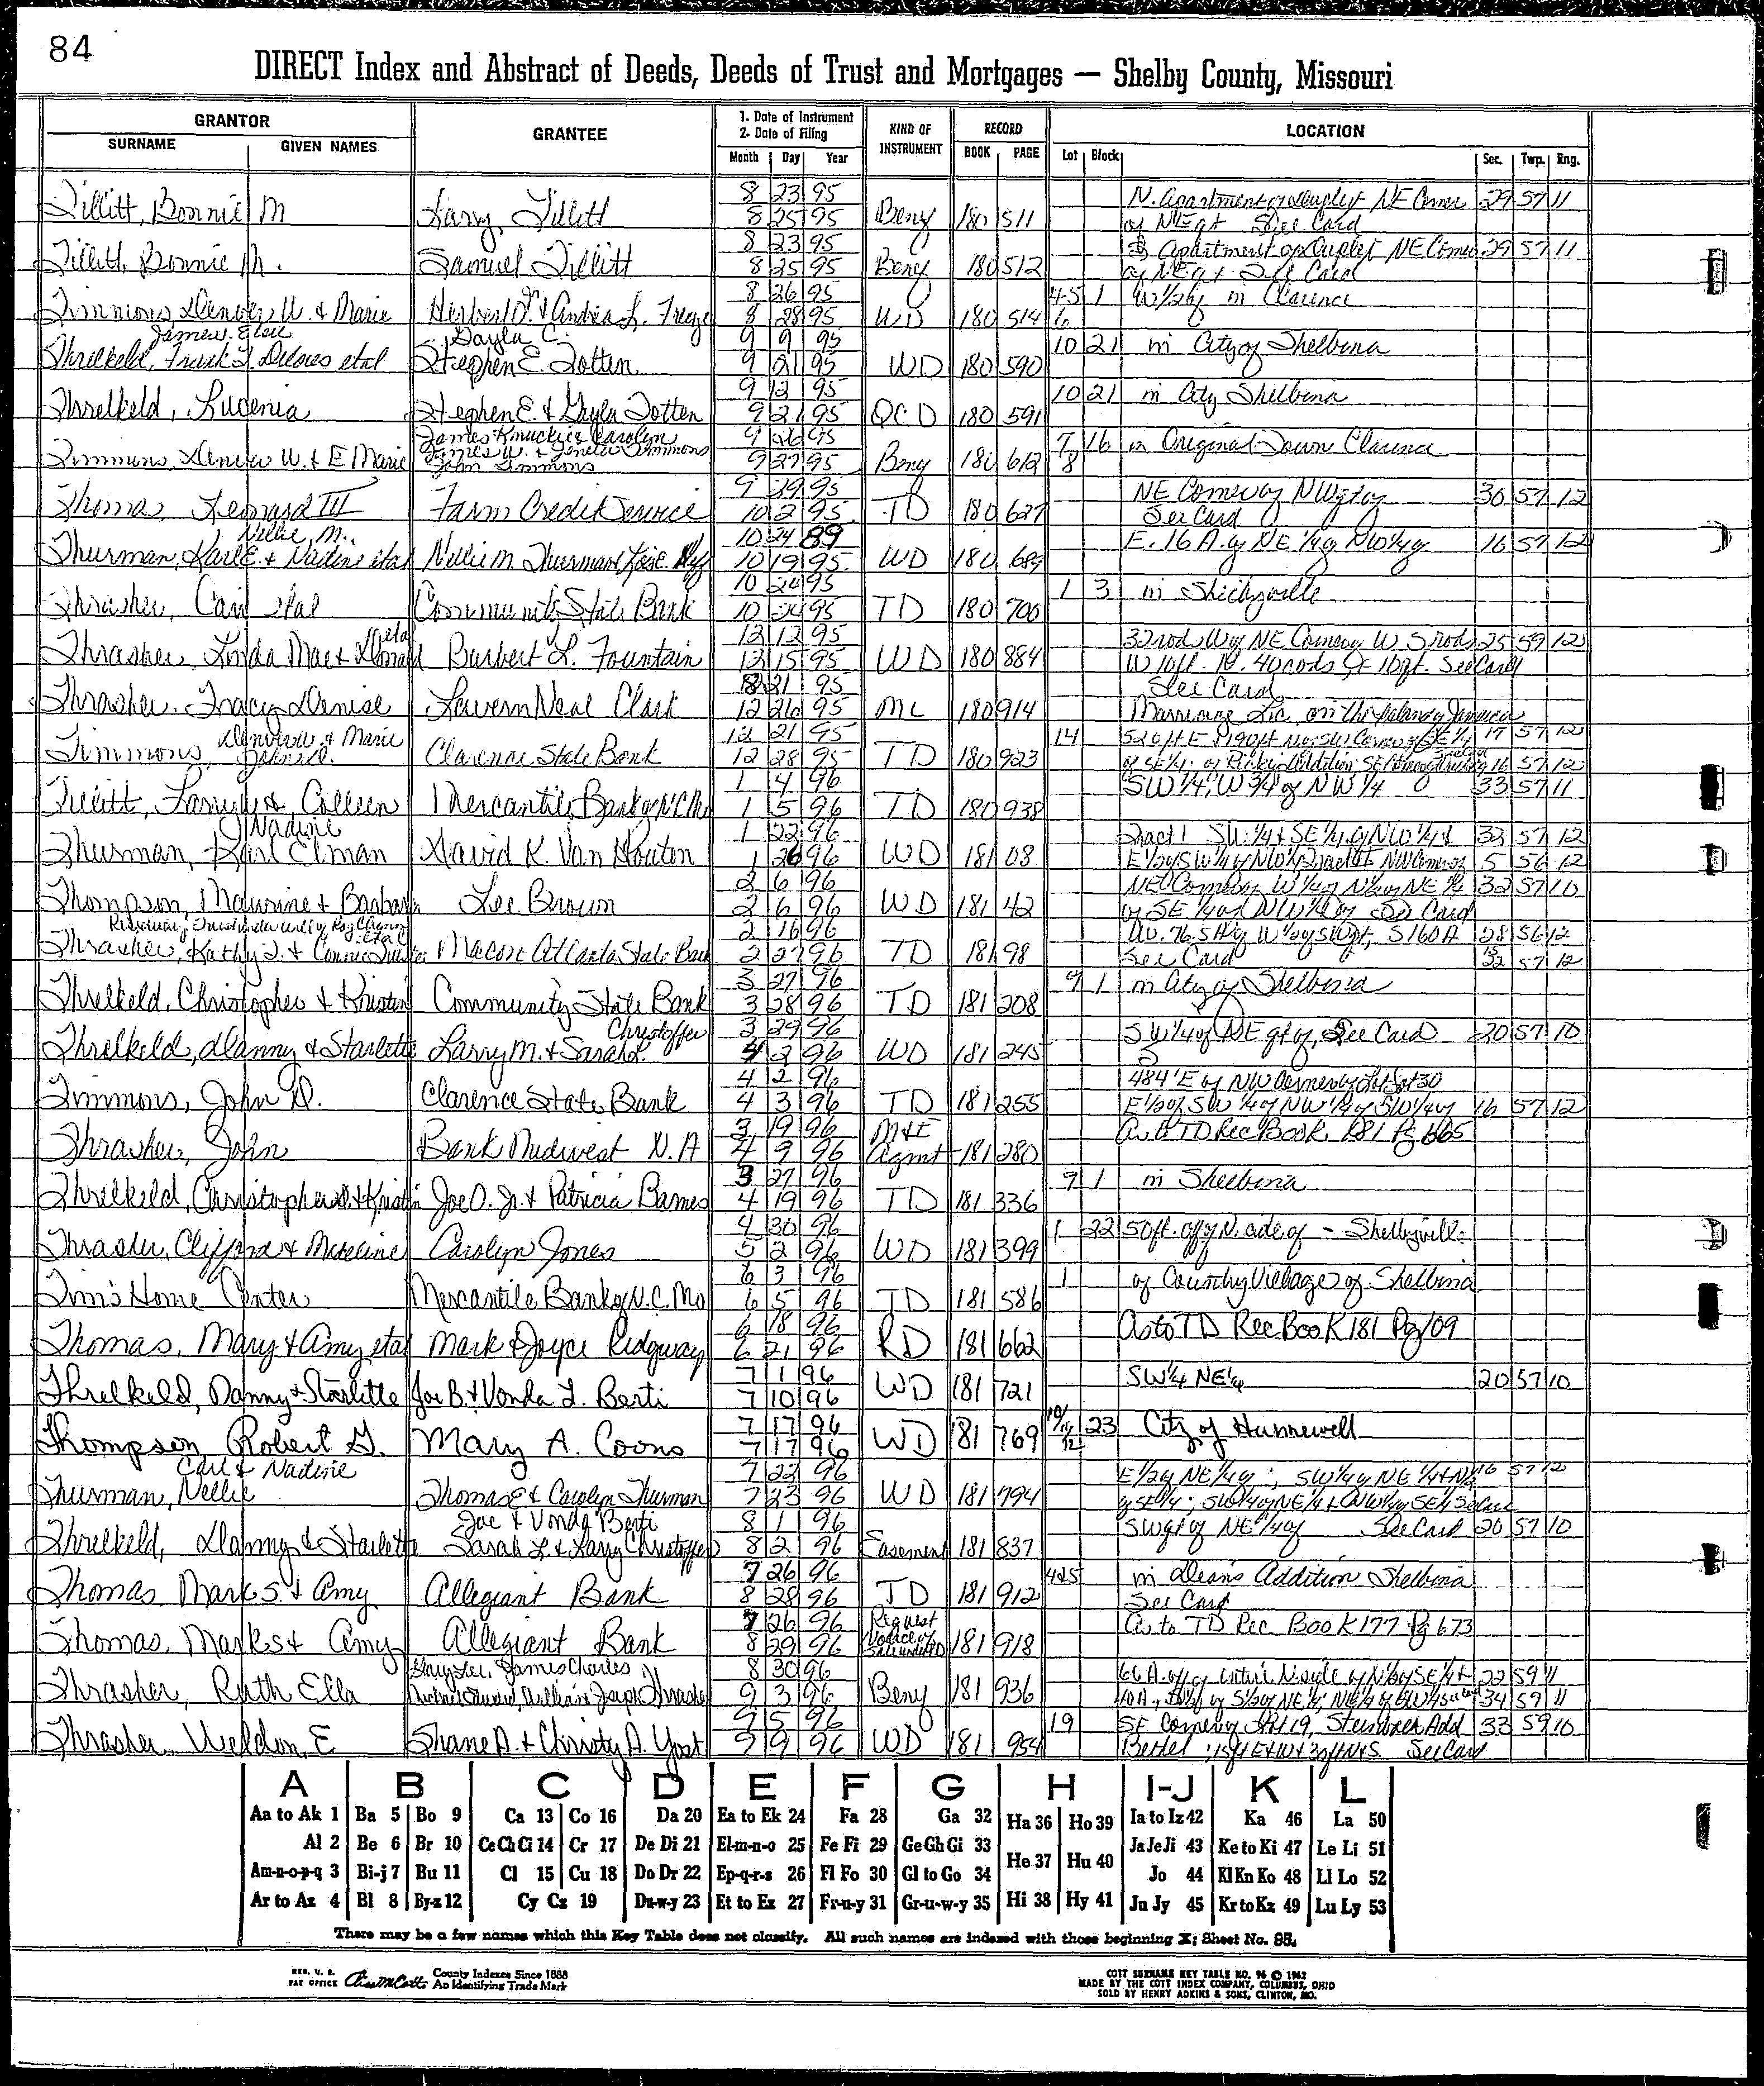 84
DIRECT Index and Abstract of Deeds, Deeds of Trust and Mortgages — Shelby County, Missouri
GRANTOR GRANTEE 1. Date of Instrument 2. Date of Filing KIND OF INSTRUMENT RECORD LOCATION
SURNAME GIVEN NAMES Month Day Year BOOK PAGE Lot Block Sec. Twp. Rng.
8 23 95 N. Apartment of duplex NE Corner 29 57 11
Tillitt, Bonnie M Larry Tillitt 8 25 95 Beny 180 511 of NE qt See Card
8 23 95 Apartment of duplex NE Corner 29 57 11
Tillitt, Bonnie M. Samuel Tillitt 8 25 95 Beny 180 512 of NE qt. See Card
8 26 95 4-5 1 W 1/2 of in Clarence
Timmons Denver W. & Marie Herbert & Andrea L. Freeze 8 28 95 WD 180 514 6
James Gayla C. 9 9 95 10 21 in City of Shelbina
Threlkeld, Frank Delores etal Stephen E. Totten 9 21 95 WD 180 590
9 12 95 10 21 in City Shelbina
Threlkeld, Lucenia Stephen E. & Gayla Totten 9 21 95 QCD 180 591
James Carolyn 9 26 95 7 16 in Original Town Clarence
James W. & Timmons
Timmons, Denver W. & E Marie John Timmons 9 27 95 Beny 180 612 8
9 29 95 NE Corner of NW qt of 30 57 12
Thomas, Lenard III Farm Credit Service 10 2 95 TD 180 627 See Card
Nellie M., 10 24 89 E. 16 A. of NE 1/4 of NW 1/4 of 16 57 12
Thurman, Karl E. & Nadine etal Nellie M. Thurman 10 19 95 WD 180 689
10 24 95 1 3 in Shelbyville
Thrasher, Carl etal Community State Bank 10 24 95 TD 180 700
etal 12 12 95 32 rods W of NE Corner W 5 rods 25 59 12
Thrasher, Linda Mae & Donald Burbert L. Fountain 12 15 95 WD 180 884 W 10 ft. N. 40 rods, E 10 ft. See Card
21 95 See Card
Thrasher, Tracy Denise Lavern Neal Clark 12 26 95 ML 180 914 Marriage Lic. on the Island of Jamaica
Denver W & Marie 12 21 95 14 17 57 12
Timmons, John D. Clarence State Bank 12 28 95 TD 180 923 16 57 12
1 4 96 SW 1/4; W 3/4 of NW 1/4 33 57 11
Tillitt, Larry & Colleen Mercantile Bank of N C Mo 1 5 96 TD 180 938
Nadine 1 22 96 Tract 1 SW 1/4 & SE 1/4 of NW 1/4 & 32 57 12
Thurman, Karl Elman David K. Van Houten 1 26 96 WD 181 08 E 1/2 of SW 1/4 of NW 1/4 5 56 12
2 6 96 NE Corner of W 1/4 of N 1/2 of NE 1/4 32 57 10
Thompson, Maurine & Barbara Lee Brown 2 6 96 WD 181 42 of SE 1/4 of NW 1/4 of See Card
2 16 96 28 56 12
Thrasher, Kathy J. & Connie Macon Atlanta State Bank 2 27 96 TD 181 98 See Card 57 12
3 27 96 9 1 in City of Shelbina
Threlkeld, Christopher & Kristin Community State Bank 3 28 96 TD 181 208
Christoffer 3 29 96 SW 1/4 of NE qt of, See Card 20 57 10
Threlkeld, Danny & Starlette Larry M. & Sarah L. 4 2 96 WD 181 245
4 2 96 484' E of NW Corner of Lot 30
Timmons, John D. Clarence State Bank 4 3 96 TD 181 255 E 1/2 of SW 1/4 of NW 1/4 of SW 1/4 of 16 57 12
3 19 96 Mod As to TD Rec Book 181 Pg 665
Thrasher, John Bank Midwest N. A 4 9 96 Agmt 181 280
3 27 96 9 1 in Shelbina
Threlkeld, Christopher & Kristin Joe D. Jr. & Patricia Barnes 4 19 96 TD 181 336
4 30 96 1 22 50 ft. off of N. side of - Shelbyville
Thrasher, Clifford & Madeline Carolyn Jones 5 2 96 WD 181 399
6 3 96 1 of Country Village of Shelbina
Tim's Home Center Mercantile Bank of N. C. Mo 6 5 96 TD 181 586
6 18 96 As to TD Rec Book 181 Pg 109
Thomas, Mary & Amy etal Mark & Joyce Ridgway 6 21 96 RD 181 662
7 1 96 SW 1/4 NE 1/4 20 57 10
Threlkeld, Danny & Starlette Joe B. & Vonda L. Berti 7 10 96 WD 181 721
7 17 96 10/11/12 23 City of Hunnewell
Thompson Robert G. Mary A. Coons 7 17 96 WD 181 769
Carl & Nadine 7 22 96 E 1/2 of NE 1/4 of; SW 1/4 of NE 1/4 & 16 57 12
Thurman, Nellie Thomas E & Carolyn Thurman 7 23 96 WD 181 794 of SE 1/4; SW 1/4 of NE 1/4 & NW 1/4 of SE 1/4 See Card
Joe & Vonda Berti 8 1 96 SW qt of NE 1/4 of See Card 20 57 10
Threlkeld, Danny & Starlette Sarah L. & Larry Christoffer 8 2 96 Easement 181 837
7 26 96 4 & 5 in Dean's Addition Shelbina
Thomas Mark S. & Amy Allegiant Bank 8 28 96 TD 181 912 See Card
7 26 96 Request As to TD Rec. Book 177 Pg 673
Thomas, Mark S & Amy Allegiant Bank 8 29 96 Notice of Sale under TD 181 918
James Charles 8 30 96 22 59 11
Thrasher, Ruth Ella William Joseph Thrasher 9 3 96 Beny 181 936 34 59 11
9 5 96 19 SE Corner of Lot 19, Steinbach Add 33 59 10
Thrasher Weldon E Shane A. & Christy A. Yost 9 9 96 WD 181 954 Bethel, See Card
A B C D E F G H I-J K L
Aa to Ak 1 Ba 5 Bo 9 Ca 13 Co 16 Da 20 Ea to Ek 24 Fa 28 Ga 32 Ha 36 Ho 39 Ia to Iz 42 Ka 46 La 50
Al 2 Be 6 Br 10 Ce Ch Ci 14 Cr 17 De Di 21 El-m-n-o 25 Fe Fi 29 Ge Gh Gi 33 He 37 Hu 40 Ja Je Ji 43 Ke to Ki 47 Le Li 51
Am-n-o-p-q 3 Bi-j 7 Bu 11 Cl 15 Cu 18 Do Dr 22 Ep-q-r-s 26 Fl Fo 30 Gl to Go 34 Jo 44 Kl Kn Ko 48 Ll Lo 52
Ar to Az 4 Bl 8 By-z 12 Cy Cz 19 Du-w-y 23 Et to Ez 27 Fr-u-y 31 Gr-u-w-y 35 Hi 38 Hy 41 Ju Jy 45 Kr to Kz 49 Lu Ly 53
There may be a few names which this Key Table does not classify. All such names are indexed with those beginning X; Sheet No. 85.
REG. U. S. PAT OFFICE County Indexes Since 1888 An Identifying Trade Mark
COTT SURNAME KEY TABLE NO. 96 © 1962
MADE BY THE COTT INDEX COMPANY, COLUMBUS, OHIO
SOLD BY HENRY ADKINS & SONS, CLINTON, MO.